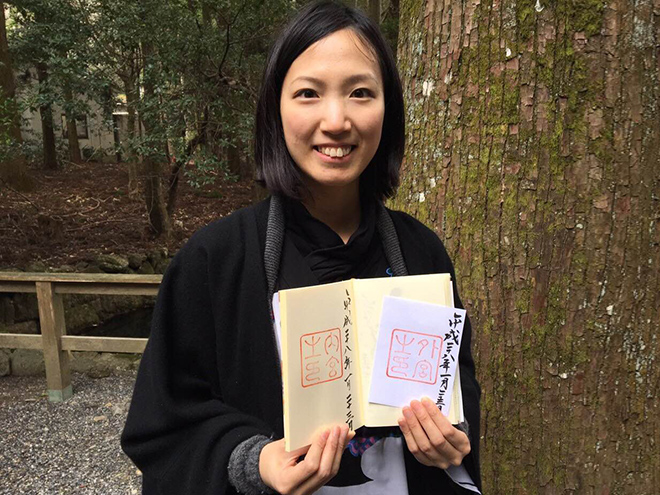 内宮
之印
平成二十八年一月二十三日
外宮
之印
平成二十八年一月